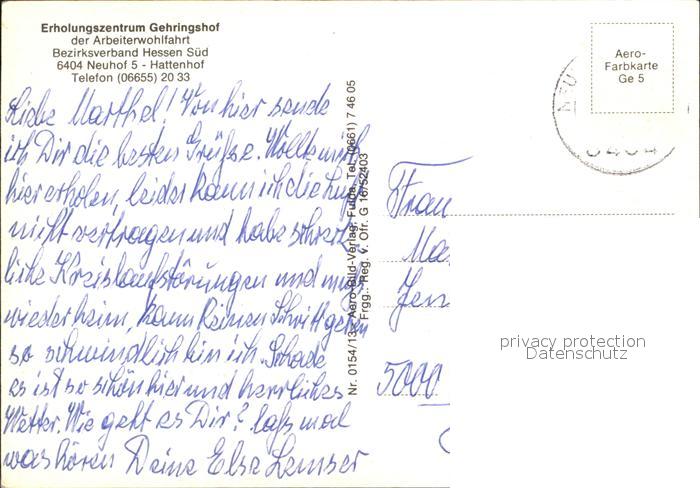 Erholungszentrum Gehringshof
der Arbeiterwohlfahrt
Bezirksverband Hessen Süd
6404 Neuhof 5 - Hattenhof
Telefon (06655) 20 33
Liebe Marthel! Von hier sende
ich Dir die besten Grüße. Wollte mich
hier erholen, leider kann ich die Luft
nicht vertragen und habe schreck-
liche Kreislaufstörungen und muß
wieder heim, kann keinen Schritt gehen
so schwindlich bin ich. Schade
es ist so schön hier und herrliches
Wetter. Wie geht es Dir? laß mal
was hören Deine Else
Nr. 0154/13 Aero-Bild-Verlag, Fulda, Tel. (0661) 7 46 05
Frgg.: Reg. v. Ofr. G 16/52403
Aero-
Farbkarte
Ge 5
NEU
6404
Frau
Ma
Jen
5000
privacy protection
Datenschutz